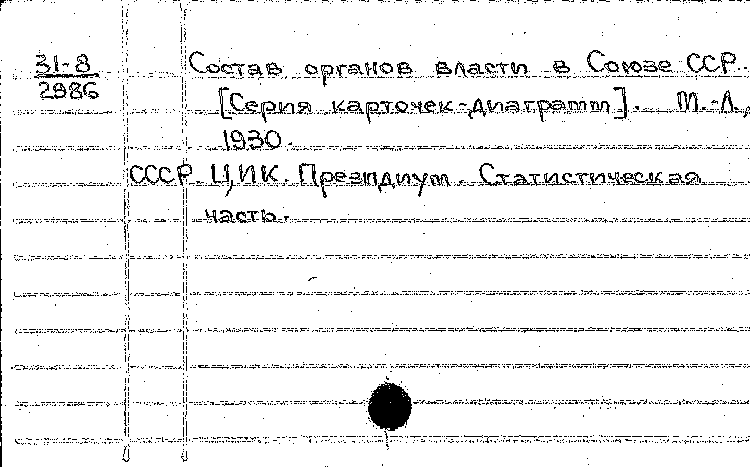 31-8
2986
Состав органов власти в Союзе ССР.
[Серия карточек-диаграмм]. М.-Л.,
1930.
СССР. ЦИК. Президиум. Статистическая
часть.